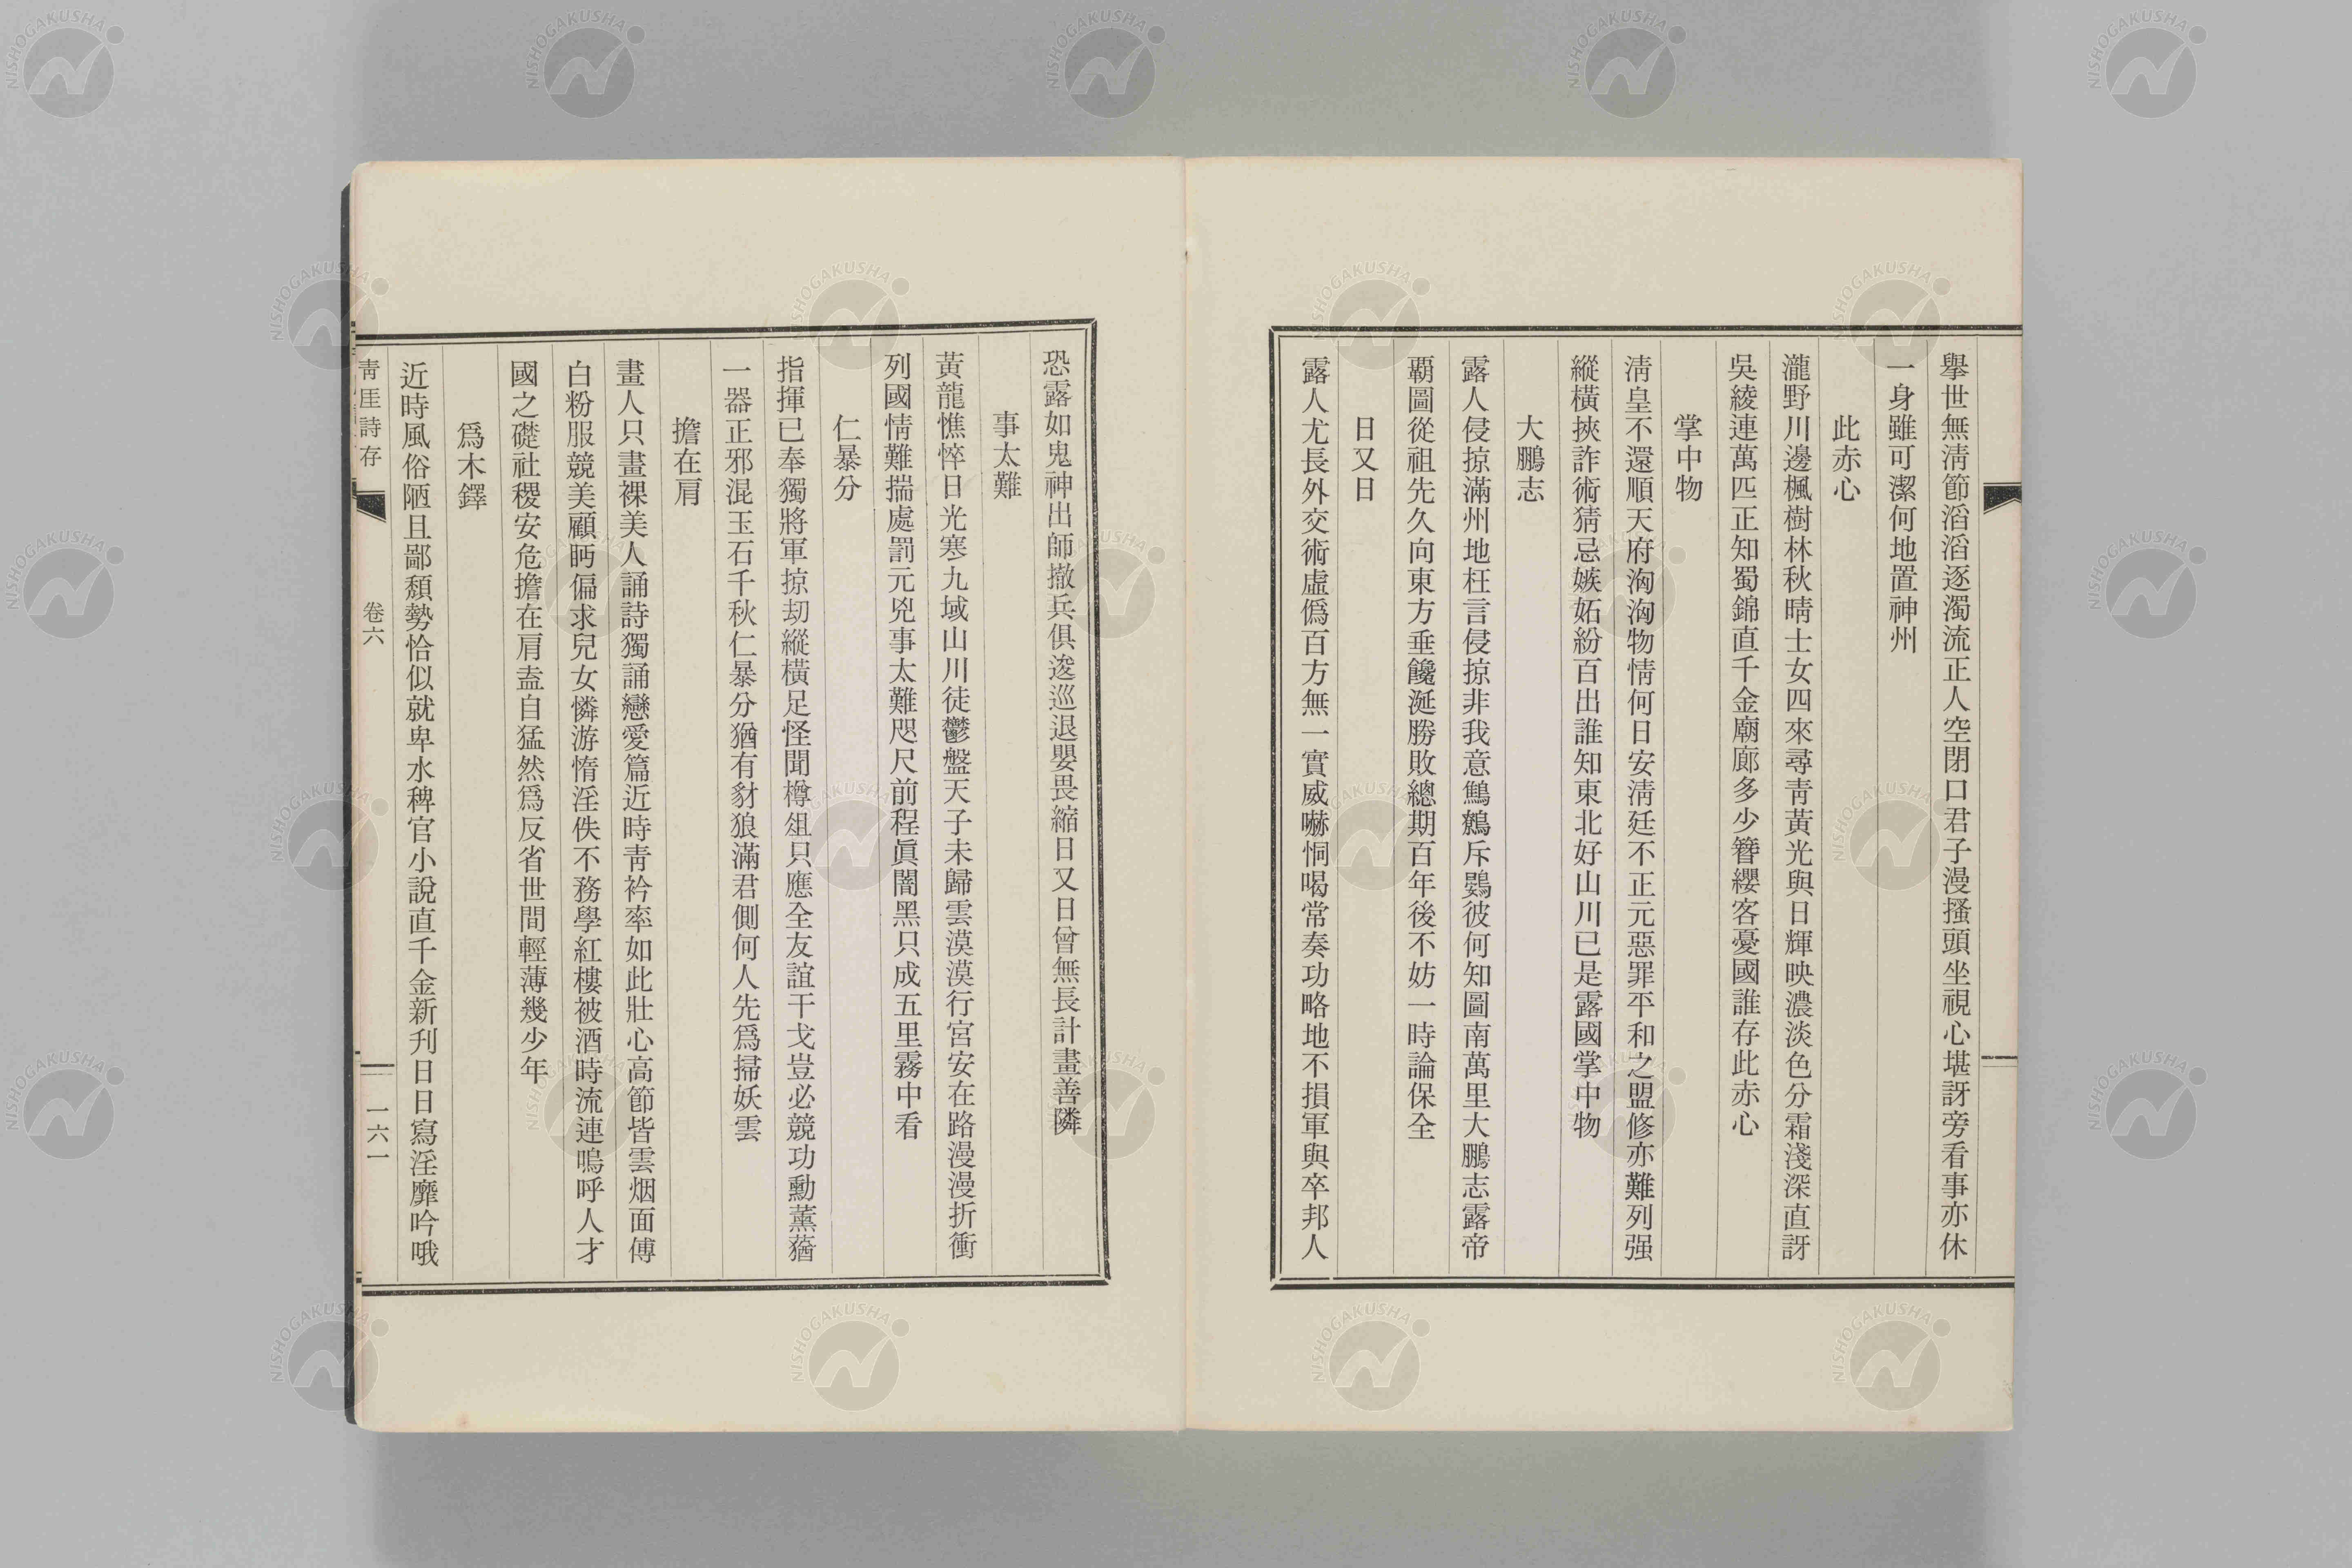 擧世無淸節滔滔逐濁流正人空閉口君子漫搔頭坐視心堪訝旁看事亦休
一身雖可潔何地置神州
此赤心
瀧野川邊楓樹林秋晴士女四來尋靑黃光與日輝映濃淡色分霜淺深直訝
吳綾連萬匹正知蜀錦直千金廟廊多少簪纓客憂國誰存此赤心
掌中物
淸皇不還順天府洶洶物情何日安淸廷不正元惡罪平和之盟修亦難列强
縱橫挾詐術猜忌嫉妬紛百出誰知東北好山川已是露國掌中物
大鵬志
露人侵掠滿州地枉言侵掠非我意鷦鷯斥鷃彼何知圖南萬里大鵬志露帝
覇圖從祖先久向東方垂饞涎勝敗總期百年後不妨一時論保全
日又日
露人尤長外交術虛僞百方無一實威嚇恫喝常奏功略地不損軍與卒邦人
恐露如鬼神出師撤兵俱逡巡退嬰畏縮日又日曾無長計畫善隣
事太難
黃龍憔悴日光寒九域山川徒鬱盤天子未歸雲漠漠行宮安在路漫漫折衝
列國情難揣處罰元兇事太難咫尺前程眞闇黑只成五里霧中看
仁暴分
指揮已奉獨將軍掠刧縱橫足怪聞樽俎只應全友誼干戈豈必競功勳薰蕕
一器正邪混玉石千秋仁暴分猶有豺狼滿君側何人先爲掃妖雲
擔在肩
畫人只畫裸美人誦詩獨誦戀愛篇近時靑衿率如此壯心高節皆雲烟面傅
白粉服競美顧眄偏求兒女憐游惰淫佚不務學紅樓被酒時流連嗚呼人才
國之礎社稷安危擔在肩盍自猛然爲反省世間輕薄幾少年
爲木鐸
近時風俗陋且鄙頹勢恰似就卑水稗官小說直千金新刊日日寫淫靡吟哦
靑厓詩存
卷六
一六一
NISHOGAKUSHA